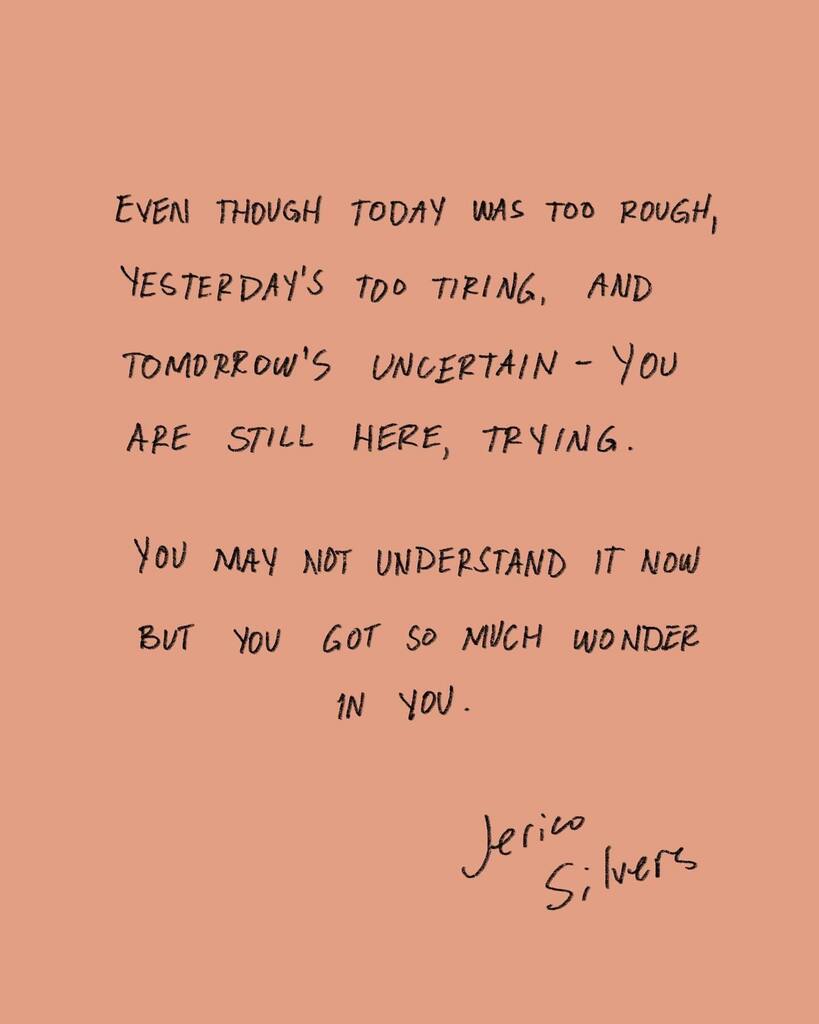 EVEN THOUGH TODAY WAS TOO ROUGH,
YESTERDAY'S TOO TIRING, AND
TOMORROW'S UNCERTAIN - YOU
ARE STILL HERE, TRYING.
YOU MAY NOT UNDERSTAND IT NOW
BUT YOU GOT SO MUCH WONDER
IN YOU.
Jerico
Silvers